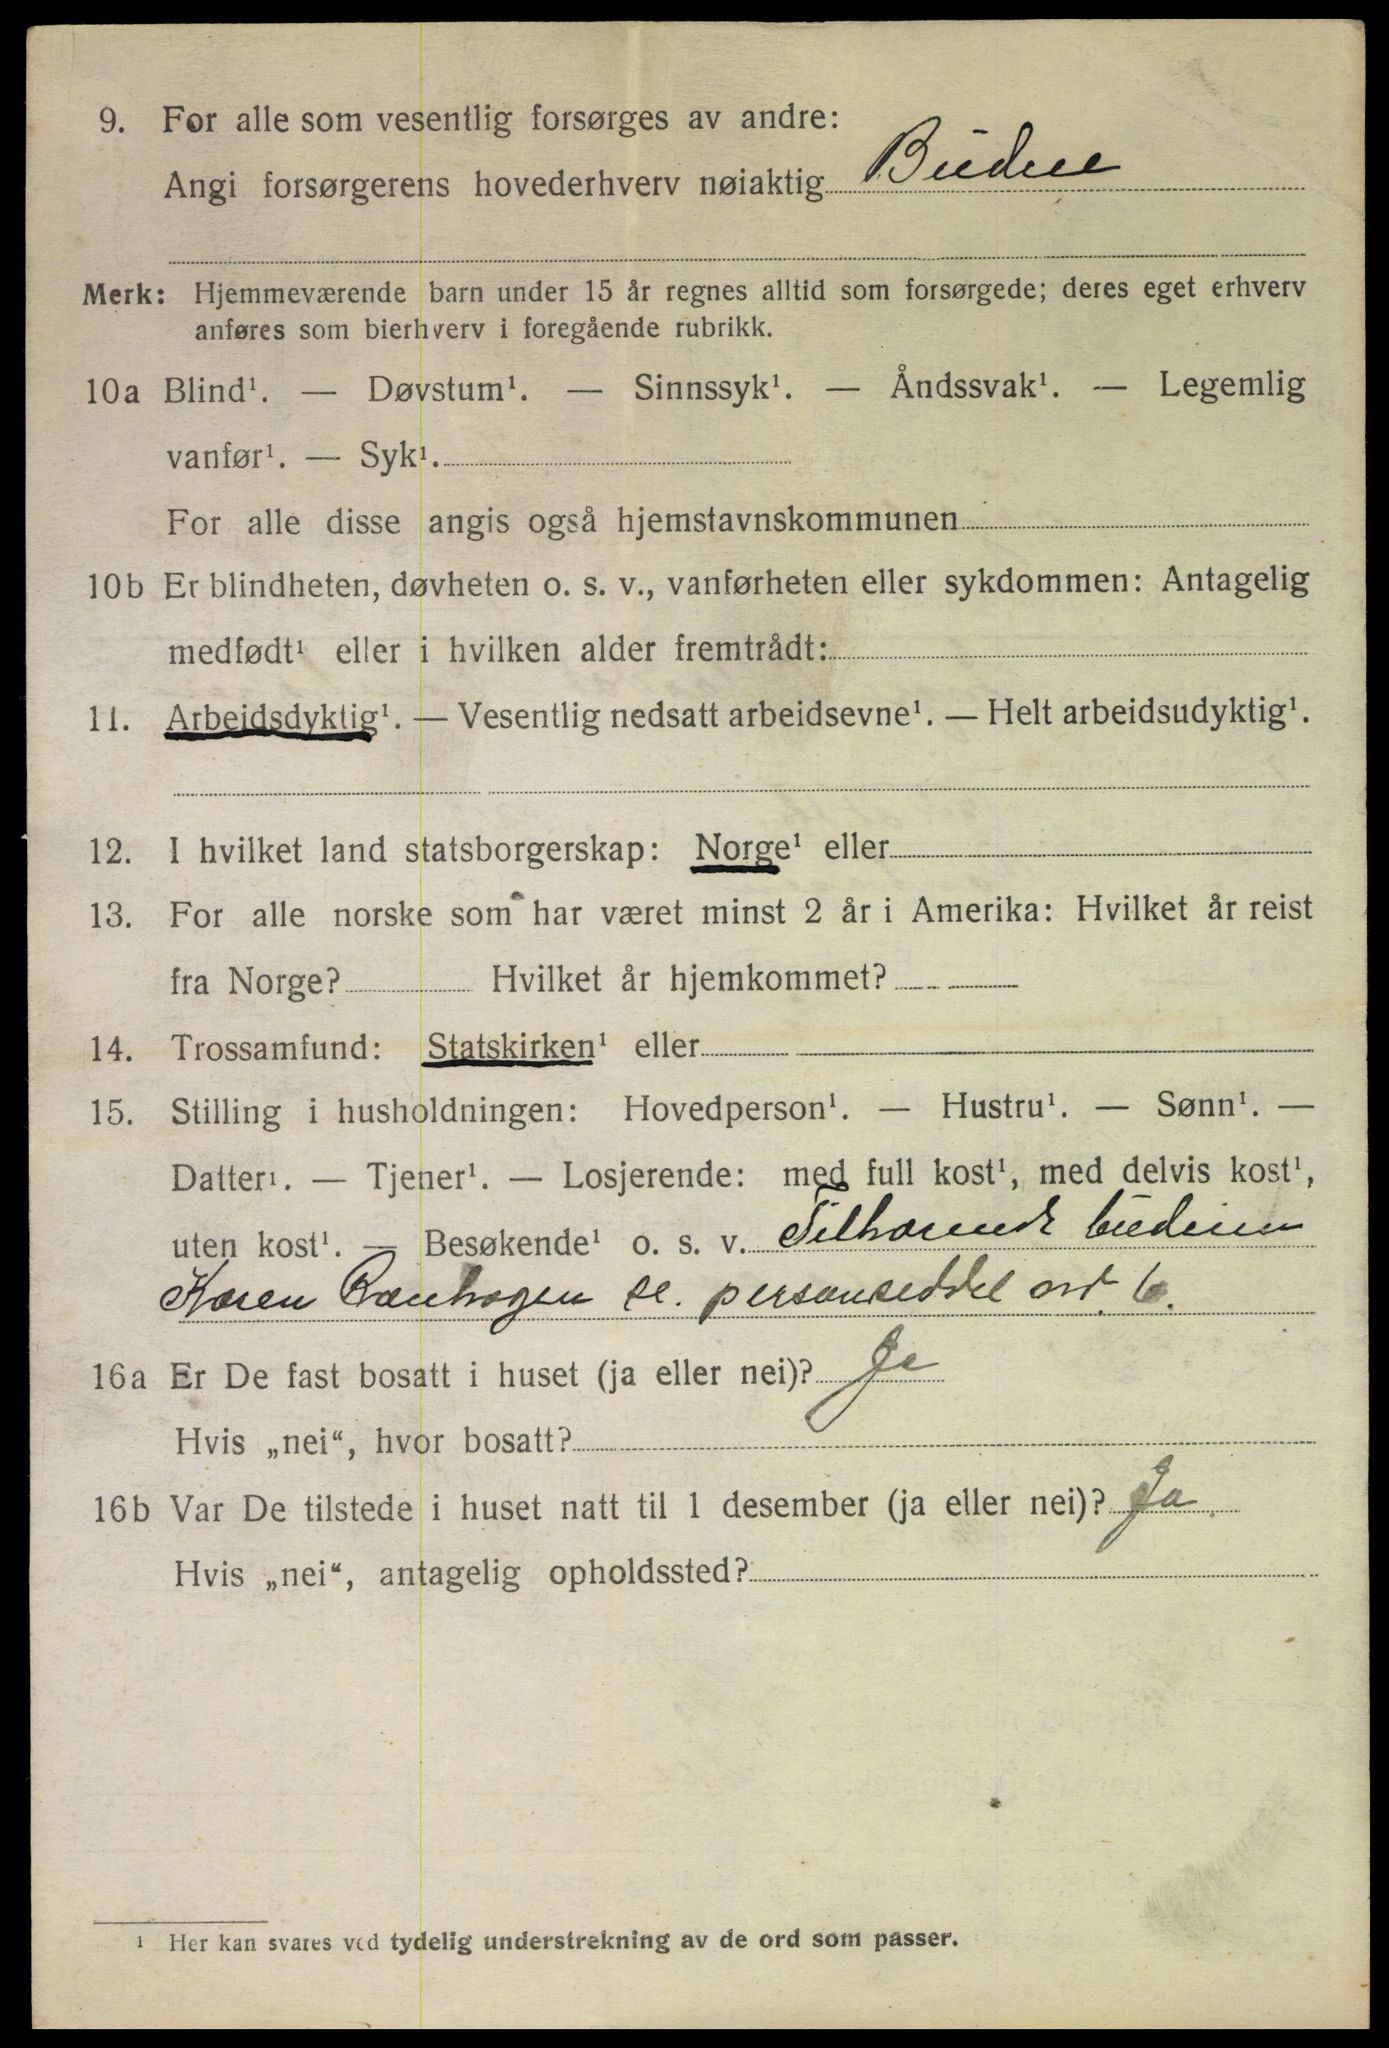 9. For alle som vesentlig forsørges av andre:
Angi forsørgerens hovederhverv nøiaktig
Merk: Hjemmeværende barn under 15 år regnes alltid som forsørgede; deres eget erhverv
anføres som bierhverv i foregående rubrikk.
10a Blind¹. — Døvstum¹. — Sinnssyk¹. — Åndssvak¹. — Legemlig
vanfør¹. — Syk¹.
For alle disse angis også hjemstavnskommunen
10b Er blindheten, døvheten o. s. v., vanførheten eller sykdommen: Antagelig
medfødt¹ eller i hvilken alder fremtrådt:
11. Arbeidsdyktig¹. — Vesentlig nedsatt arbeidsevne¹. — Helt arbeidsudyktig¹.
12. I hvilket land statsborgerskap: Norge¹ eller
13. For alle norske som har været minst 2 år i Amerika: Hvilket år reist
fra Norge? Hvilket år hjemkommet?
14. Trossamfund: Statskirken¹ eller
15. Stilling i husholdningen: Hovedperson¹. — Hustru¹. — Sønn¹. —
Datter¹. — Tjener¹. — Losjerende: med full kost¹, med delvis kost¹,
uten kost¹. — Besøkende¹ o. s. v. Tilhørende
Karen se. personseddel nr. 6.
16a Er De fast bosatt i huset (ja eller nei)? Ja
Hvis „nei“, hvor bosatt?
16b Var De tilstede i huset natt til 1 desember (ja eller nei)? Ja
Hvis „nei“, antagelig opholdssted?
¹ Her kan svares ved tydelig understrekning av de ord som passer.